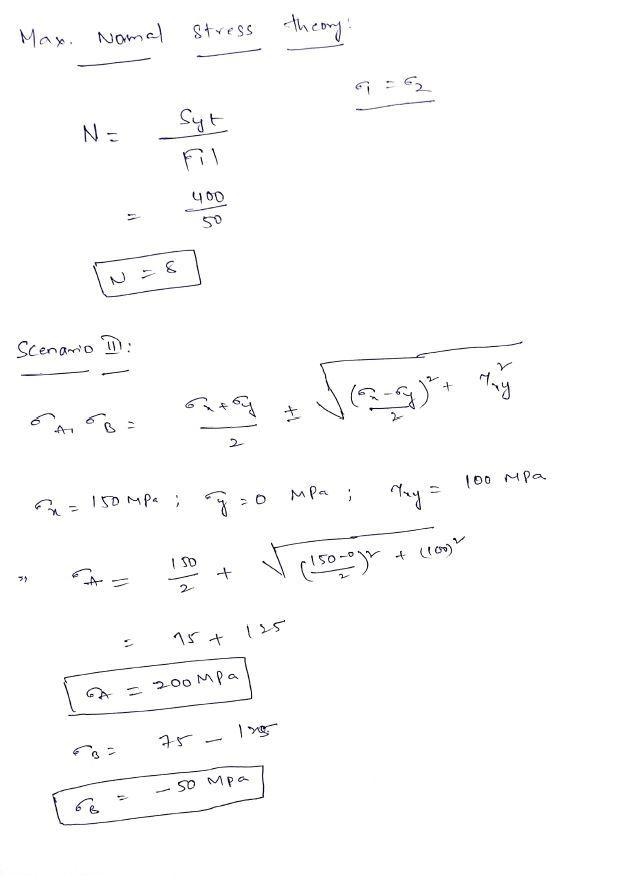 Max. Normal Stress theory:
σ1 = σ2
N = Syt / |σ1|
= 400 / 50
N = 8
Scenario III:
σA, σB = (σx + σy) / 2 ± √((σx - σy) / 2)² + τxy²
σx = 150 MPa ; σy = 0 MPa ; τxy = 100 MPa
⇒ σA = 150 / 2 + √((150-0) / 2)² + (100)²
= 75 + 125
σA = 200 MPa
σB = 75 - 125
σB = -50 MPa